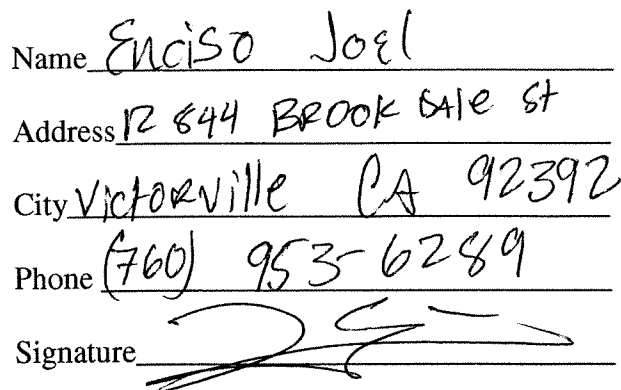 Name Enciso Joel
Address 12 844 BROOK DAle St
City VictoRville CA 92392
Phone (760) 953-6289
Signature